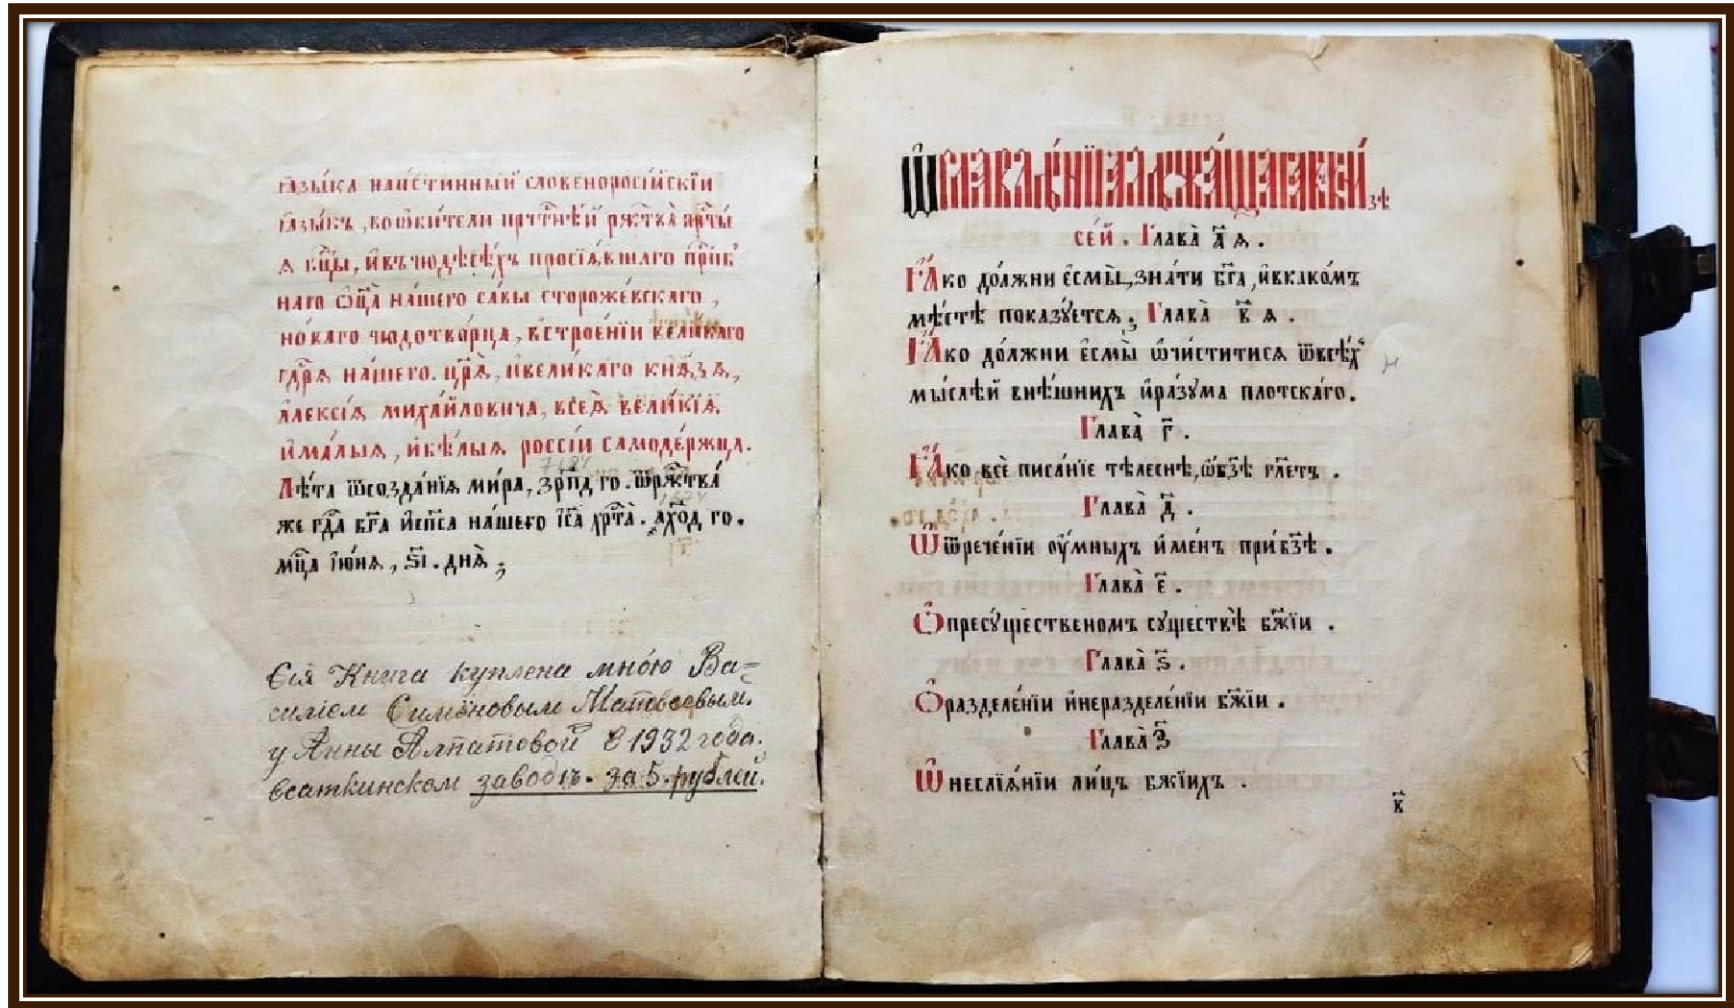 ꙗзы́ка наи́стинный словеноросі́йскїи
ꙗзы́къ, воѡби́тели пречⷭ҇тнѣ́й ржⷭ҇тва̀ прⷭ҇ты́
ѧ бцⷣы, и҆въчюдесѣ́хъ просїѧ́вшаго прпⷣб
наго ѻ҆ц҃а̀ на́шего са́вы стороже́вскаго,
но́ваго чюдотво́рца, встрое́нїи вели́каго
гдⷭ҇рѧ на́шего. цр҃ѧ̀, и҆вели́каго кнѧ́зѧ,
а҆леѯі́ѧ миха́йловича, всеѧ̀ вели́кїѧ
и҆ма́лыѧ, и҆бѣ́лыѧ россі́и самоде́ржца.
7184
Лѣ́та ѿсозда́нїѧ ми́ра, ҂зрп҃д го. ѿржⷭ҇тва́
1674
же гдⷭ҇а бг҃а и҆сп҃са на́шего і҆са хрⷭ҇та̀. ҂ахо҃д го.
мцⷭ҇а і҆ю́нѧ, ѕ҃і. днѧ̀ ;
Сія Книга куплена мною Ва=
силіем Симёновым Матвеевым.
у Анны Алпатовой в 1932 года.
всаткинском заводѣ. за 5. рублей.
Ѿглавле́нїе належа́щаѧ въкни́зѣ
се́й. Глава̀ а҃ ѧ.
Ꙗ҆́ко до́лжни є҆смы̀, зна́ти бг҃а, и҆вкако́мъ
мѣ́стѣ показꙋ́етсѧ ; Глава̀ в҃ ѧ.
Ꙗ҆́ко до́лжни є҆смы̀ ѡ҆чи́ститисѧ ѿвсѣ́х
мы́слей внѣ́шнихъ и҆ра́зꙋма плотска́го.
Глава̀ г҃.
Ꙗ҆́ко всѐ писа́нїе тѣле́снѣ, ѡ҆бз҃ѣ гл҃етъ.
Глава̀ д҃.
Ѡ҆ѿрече́нїи оу҆́мныхъ и҆ме́нъ при́бз҃ѣ.
Глава̀ є҃.
Ѡ҆пресꙋ́щественомъ сꙋществѣ̀ бж҃їи.
Глава̀ ѕ҃.
Ѻ҆разделе́нїи и҆неразделе́нїи бж҃їи.
Глава̀ з҃
Ѡ҆неслїѧ́нїи ли́цъ бж҃їихъ.
к҃